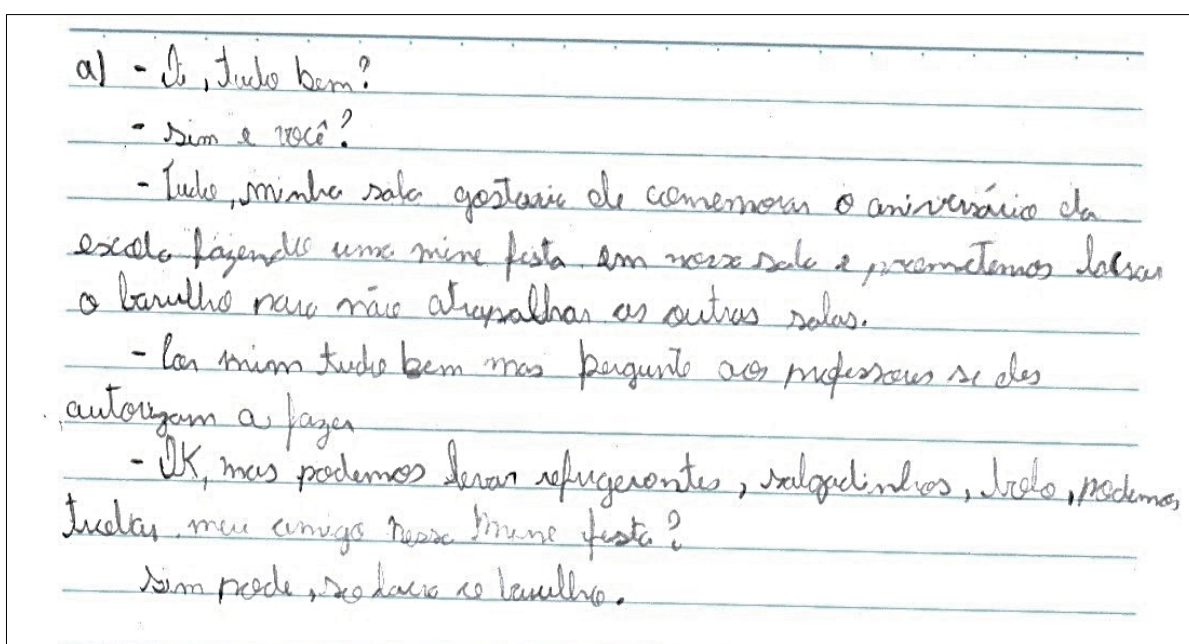 a) - Oi, tudo bem?
- sim e você?
- Tudo, minha sala gostaria de comemorar o aniversário da
escola fazendo uma mine festa em nossa sala e prometemos
o barulho para não atrapalhar as outras salas.
- Por mim tudo bem mas pergunte aos professores se eles
autorizam a fazer
- OK, mas podemos levar refrigerantes, salgadinhos, bolo, podemos
meu amigo nessa mine festa?
sim pode, so o barulho.